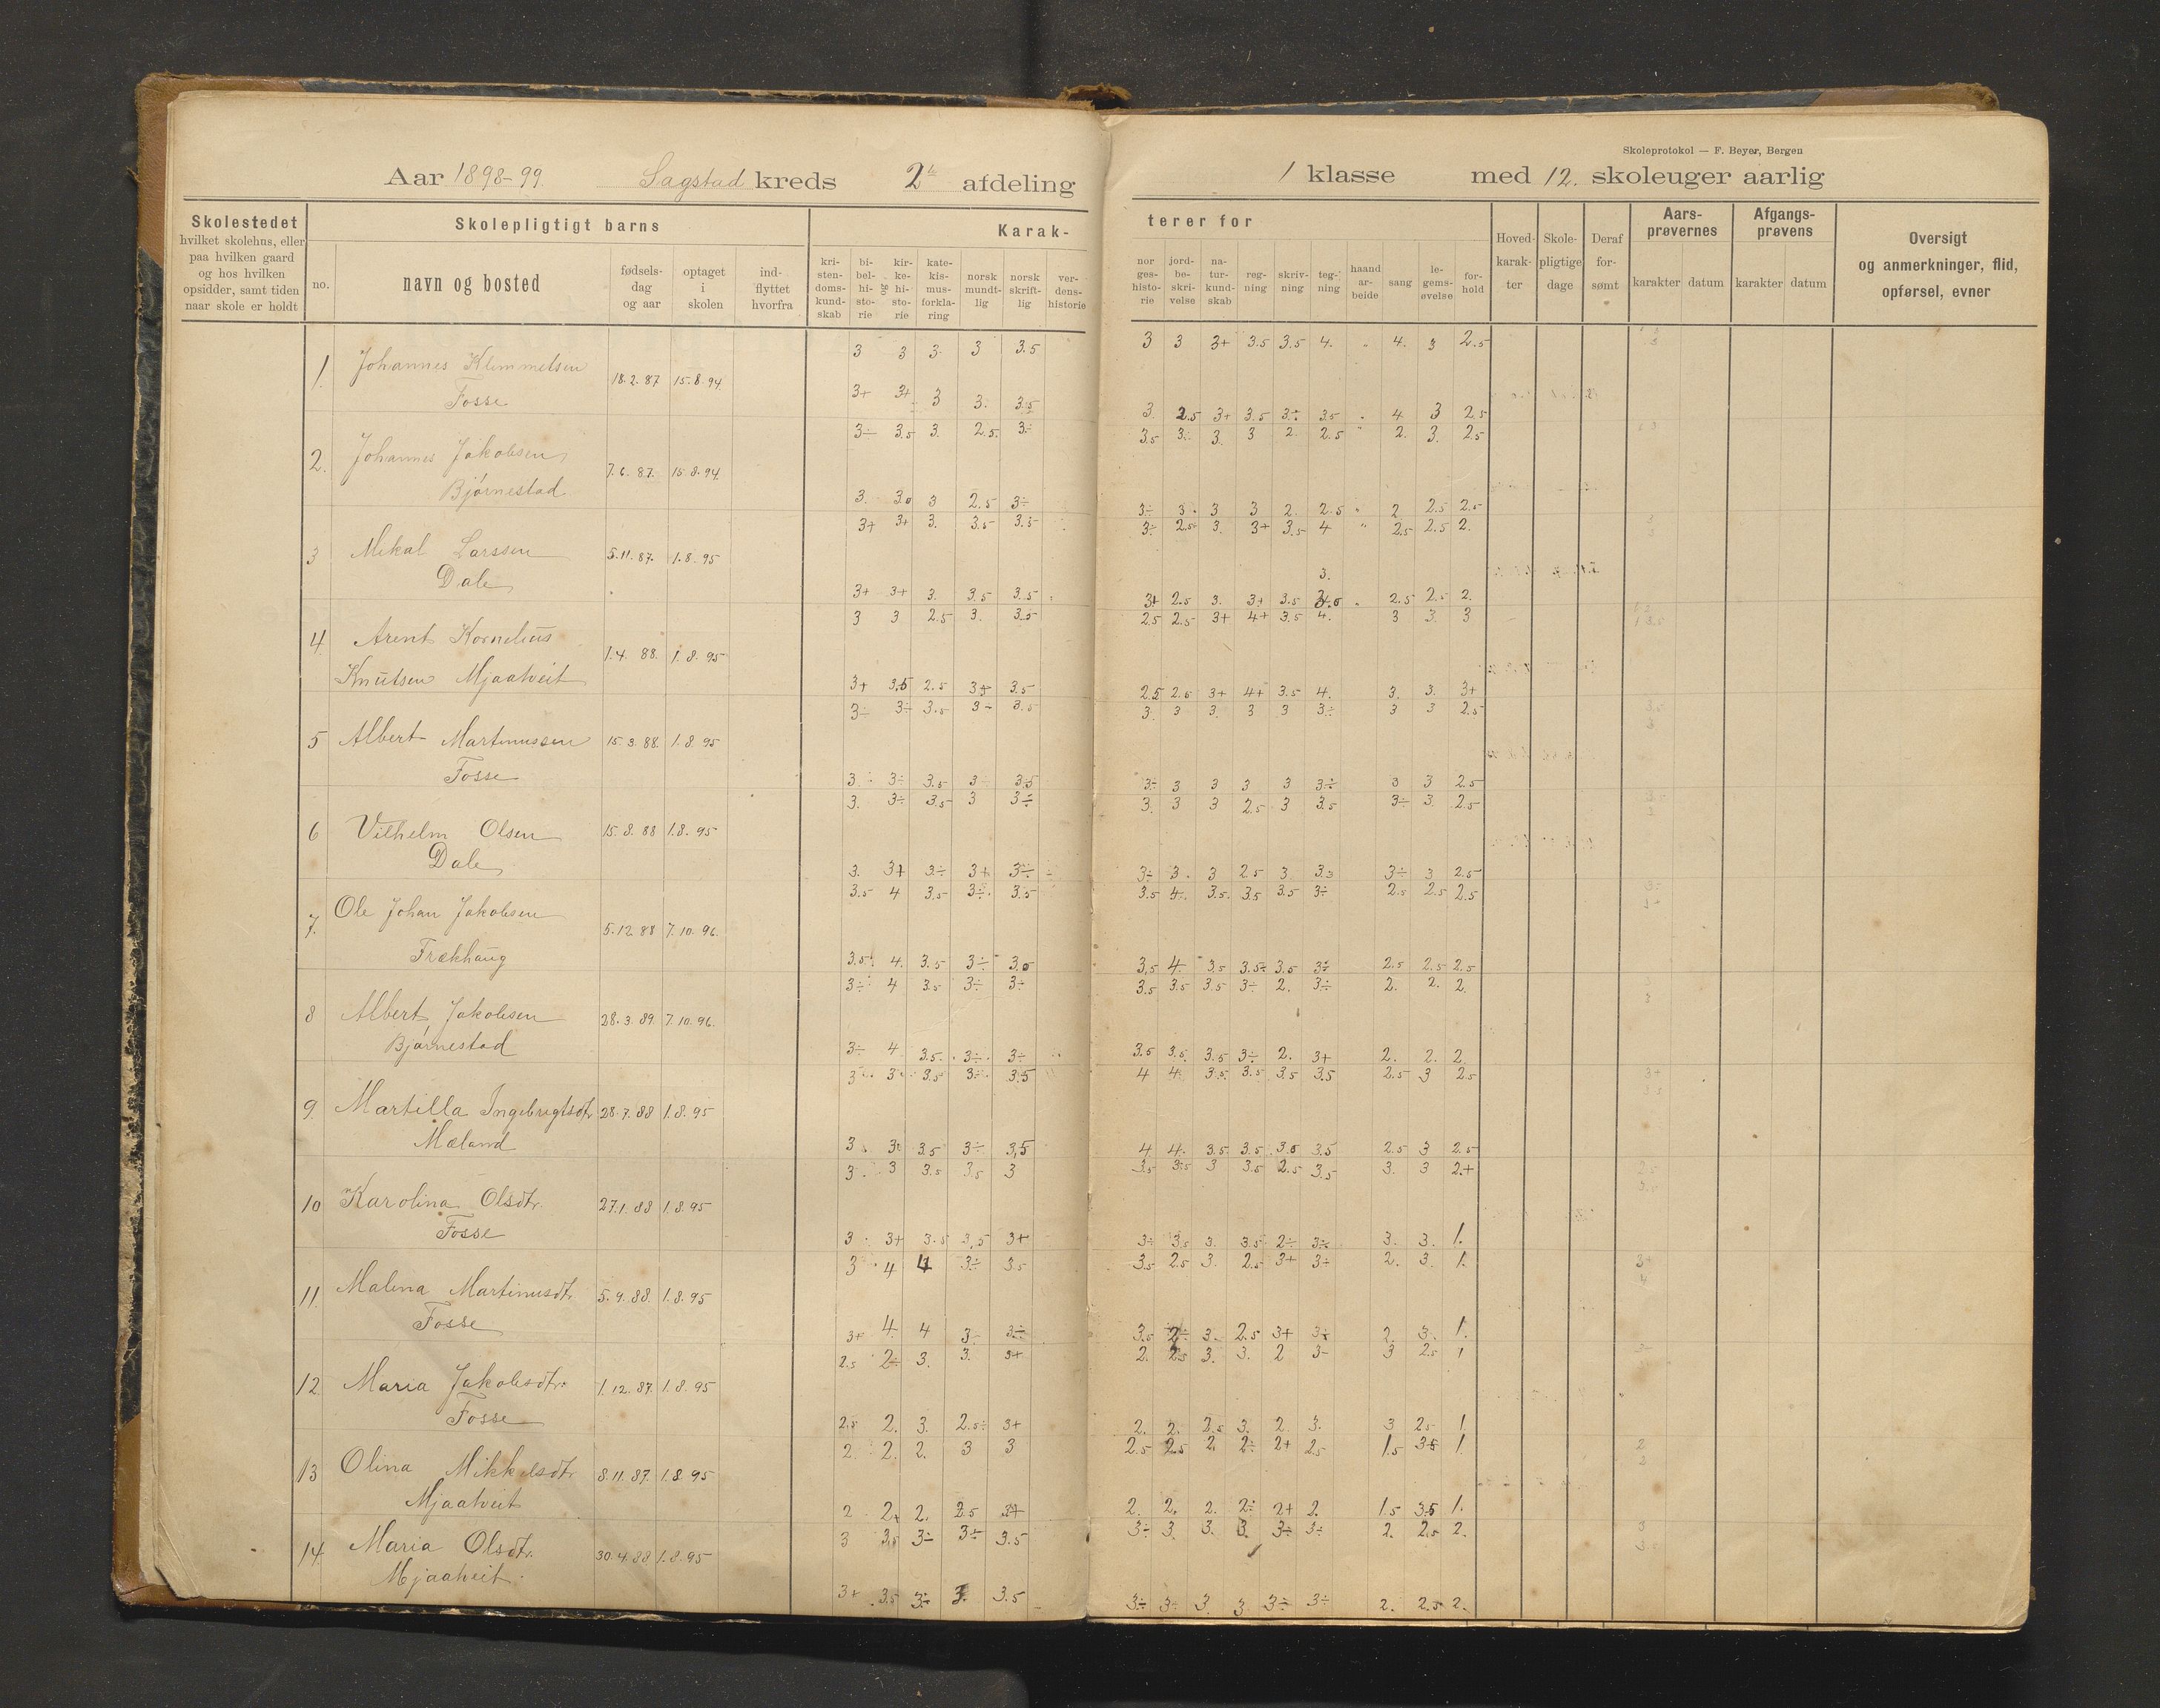 Skoleprotokol — F. Beyer, Bergen
Aar 1898-99. Sagstad kreds 2 afdeling 1 klasse med 12. skoleuger aarlig
Skolestedet
hvilket skolehus, eller
paa hvilken gaard
og hos hvilken
opsidder, samt tiden
naar skole er holdt
Skolepligtigt barns
no. navn og bosted
fødsels-
dag
og aar
optaget
i
skolen
ind-
flyttet
hvorfra
Karak-
kri-
sten-
doms-
kund-
skab
bi-
bel-
hi-
sto-
rie
og
kir-
ke-
hi-
sto-
rie
kate-
kis-
mus-
forkla-
ring
norsk
mundt-
lig
norsk
skrift-
lig
ver-
dens-
historie
terer for
nor
ges-
histo-
rie
jord-
be-
skri-
velse
na-
tur-
kund-
skab
reg-
ning
skriv-
ning
teg-
ning
haand
ar-
beide
sang
le-
gems-
øvelse
for-
hold
Hoved-
karak-
ter
Skole-
pligtige
dage
Deraf
for-
sømt
Aars-
prøvernes
karakter datum
Afgangs-
prøvens
karakter datum
Oversigt
og anmerkninger, flid,
opførsel, evner
3 3 3 3 3.5 3 3 3+ 3.5 3.5 4. " 4. 3 2.5
1. Johannes Klemmetsen 18.2.87 15.8.94
Fosse
3+ 3+ 3 3. 3.5 3 2.5 3+ 3.5 3÷ 3.5 4 3 2.5
3÷ 3.5 3. 2.5. 3÷ 3.5 3÷ 3. 3 2. 2.5 " 2. 3. 2.5
2. Johannes Jakobsen 7.6.87. 15.8.94
Bjørnestad
3. 3.0 3 2.5 3÷ 3÷ 3. 3 3 2. 2.5 2. 2.5 2.5
3+ 3+ 3. 3.5 3.5 3÷ 2.5 3. 3+ 3.5 4 " 2.5 2.5 2.
3 Mikal Larssen 5.11.87. 1.8.95
Dale
3.
3+ 3+ 3. 3.5 3.5 3+ 2.5 3. 3+ 3.5 2.5 2.5 2.
3 3 2.5 3. 3.5 2.5 2.5 3+ 4+ 3.5 4. 3 3. 3
4 Arent Kornelius 1.4.88. 1.8.95
Knutsen Mjaatveit
3+ 3.5 2.5 3.5 2.5 2.5 3+ 4+ 3.5 4. 3. 3. 3+
3÷ 3÷ 3.5 3÷ 3.5 3. 3 3. 3 3 3÷ 3 3 2.5
5 Albert Martinussen 15.3.88. 1.8.95
Fosse
3÷ 3÷ 3.5 3÷ 3.5 3÷ 3 3 3 3 3÷ 3 3 2.5
3. 3÷ 3.5 3 3÷ 3. 3 3 2.5 3 3.5 3÷ 3. 2.5
6 Vilhelm Olsen 15.8.88 1.8.95
Dale
3. 3+ 3÷ 3+ 3÷ 3÷ 3. 3 2.5 3 3÷ 3 2.5
3.5 4 3.5 3÷ 3.5 3.5 4. 3.5. 3.5 3.5 3÷ 2.5 2.5 2.5
7. Ole Johan Jakobsen 5.12.88 7.10.96.
Frækhaug
3.5 4. 3.5 3÷ 3.5 4. 3.5 3.5÷ 3.5 3÷ 2.5 2.5 2.5
3÷ 4 3.5 3÷ 3÷ 3.5 3.5 3.5 3÷ 2. 3÷ 2. 2. 2.
8 Albert Jakobsen 28.3.89. 7.10.96.
Bjørnestad
3÷ 4 3.5. 3÷. 3÷ 3.5 3.5. 3.5 3÷ 2. 3+ 2. 2. 2.
3 3 3.5 3÷ 3.5 4 4. 3.5. 3.5 3.5 3.5 2.5 3 2.5
9. Martilla Ingebrigtsdtr 28.7.88 1.8.95
Mæland
3 3 3.5 3÷ 3,5 4 4. 3.5. 3.5 3.5 3.5 2.5 3 2.5
3 3 3.5 3.5 3 3.5 3.5 3 3.5 2.5 3.5 3. 3 2.+
10 Karolina Olsdtr. 27.1.88 1.8.95
Fosse
3 3+ 3.5 3,5 3+ 3÷ 3.5 3. 3.5 2÷ 3÷ 3. 3. 1.
3 4 4 3÷ 3.5 3.5 2.5 3. 2.5 3+ 3÷ 2. 3. 1.
11. Malina Martinusdtr. 5.9.88. 1.8.95
Fosse
3+ 4. 4 3 3÷ 3.5 2÷ 3. 2.5 3+ 3÷ 2. 3. 1.
2.5 2÷ 3. 3. 3+ 2. 2.5 3. 3. 2 3÷ 3 2.5 1
12. Maria Jakobsdtr. 1.12.87. 1.8.95
Fosse
2.5 2. 3. 2.5÷ 3+ 2. 2. 2.5 3. 2. 3. 3 2.5 1
2. 2. 2. 3 3 2.5 2.5 2. 2÷ 2+ 2.5 1.5 3.5 1.
13 Olina Mikkelsdtr. 8.11.87. 1.8.95
Mjaatveit
2 2+ 2. 2.5 3+ 2. 2. 2. 2÷ 2+ 2. 1.5 3.5 1.
3 3.5 3÷ 3÷ 3.5 3÷ 3. 3. 3. 3÷ 3÷ 2. 2.5 2.
14. Maria Olsdtr. 30.4.88 1.8.95
Mjaatveit.
3+ 3.5 3÷ 3. 3.5 3÷ 3÷ 3. 3 3÷ 3÷ 2. 2.5 2.